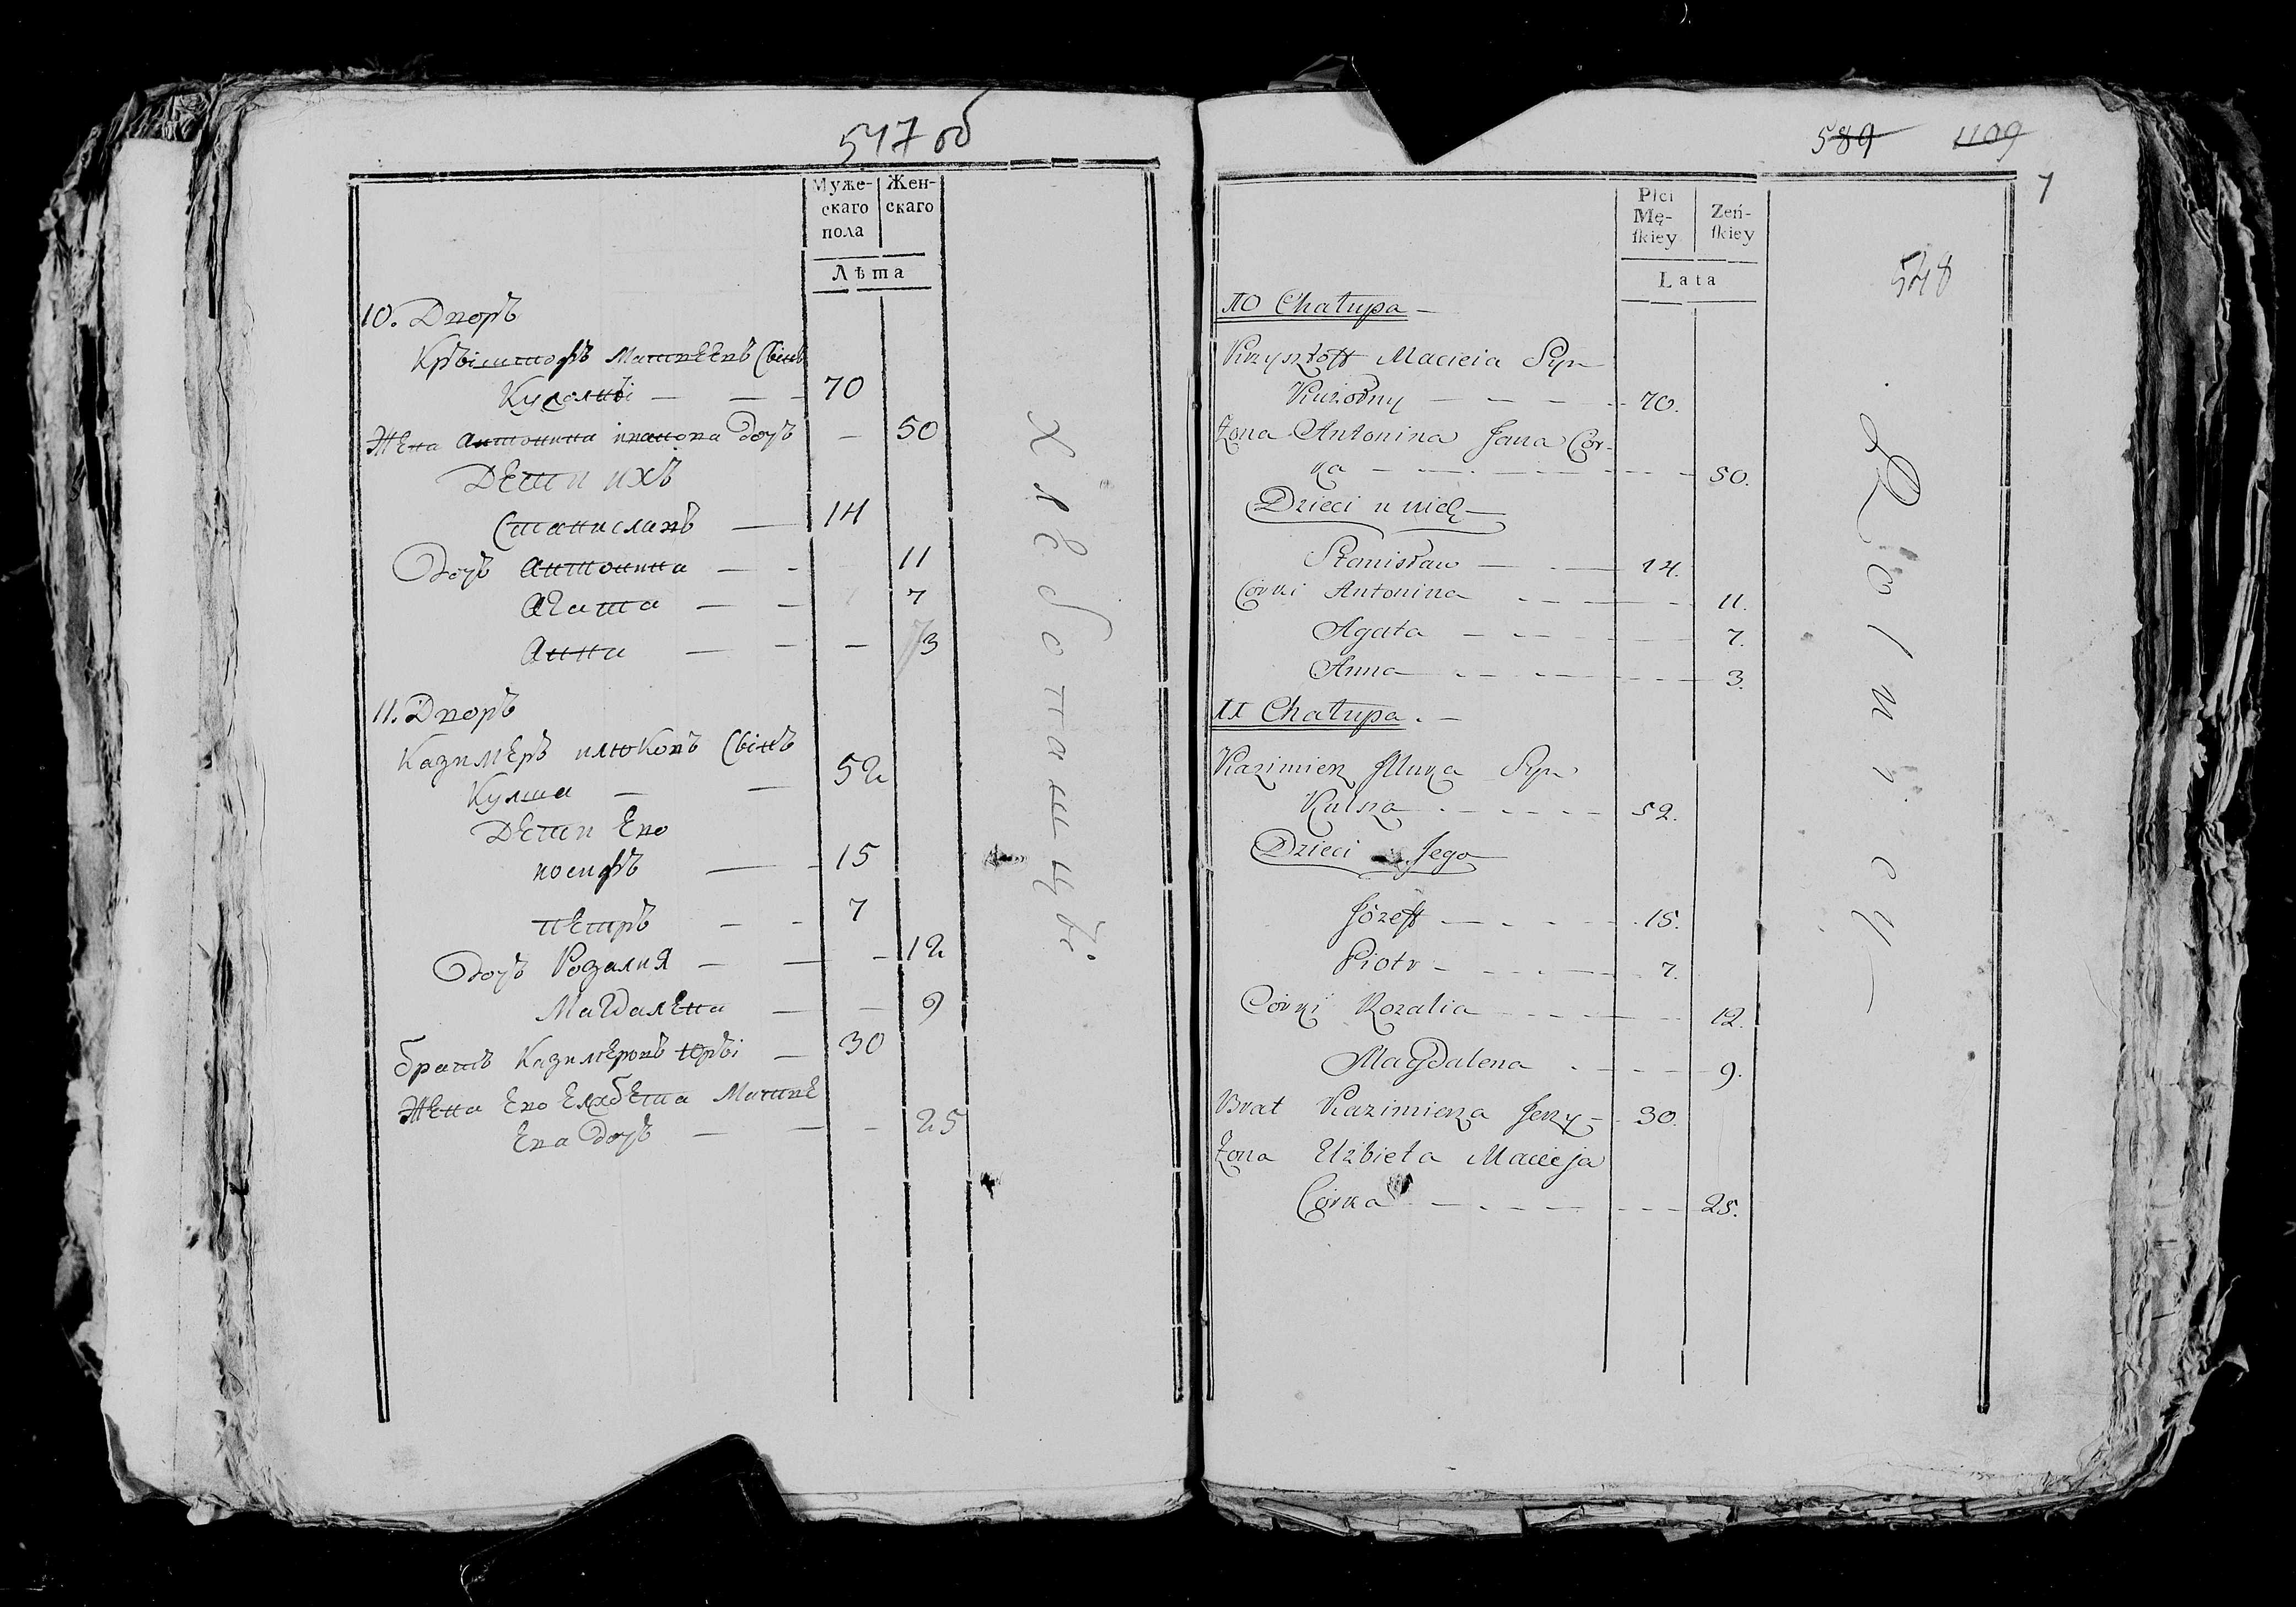 547 об
Муже-
скаго
пола
Жен-
скаго
Лѣта
10. Дворъ
Жена Антонина иванова дочъ — 50
70
Дети ихъ
Станиславъ — 14
Дочъ Антонина — - 11
Агата — — 7
Анна — — — 3
11. Дворъ
Казимеръ
Кулша — — 52
Дети Ево
иосифъ — 15
петръ — - 7
Дочъ Розалия — — - 12
Магдалена — — 9
братъ Казимеровъ — 30
Жена Ево Елзбета Матве
Ева дочъ — — - 25
Хлебопашцы.
589 1109
7
548
Płci
Mę-
ſkiey
Zeń-
ſkiey
Lata
10 Chałupa —
Krzysztoff Macieia Syn
70.
Żona Antonina Jana Cór-
ka — — — — 50.
Dzieci u nich —
Stanisław — - — 14.
Córki Antonina - — — - 11.
Agata — - — - — 7.
Anna — - - — - 3.
11 Chałupa . —
Kazimierz Syn
Kulsza - — - - - 52.
Dzieci Jego
Józeff — - - - 15.
Piotr - - - - — 7.
Córki Rozalia - - - - — 12.
Magdalena - - — - 9.
Brat Kazimierza Jerzy - 30.
Żona Elżbieta Macieja
Córka — - - - — - 25.
Rolnicy